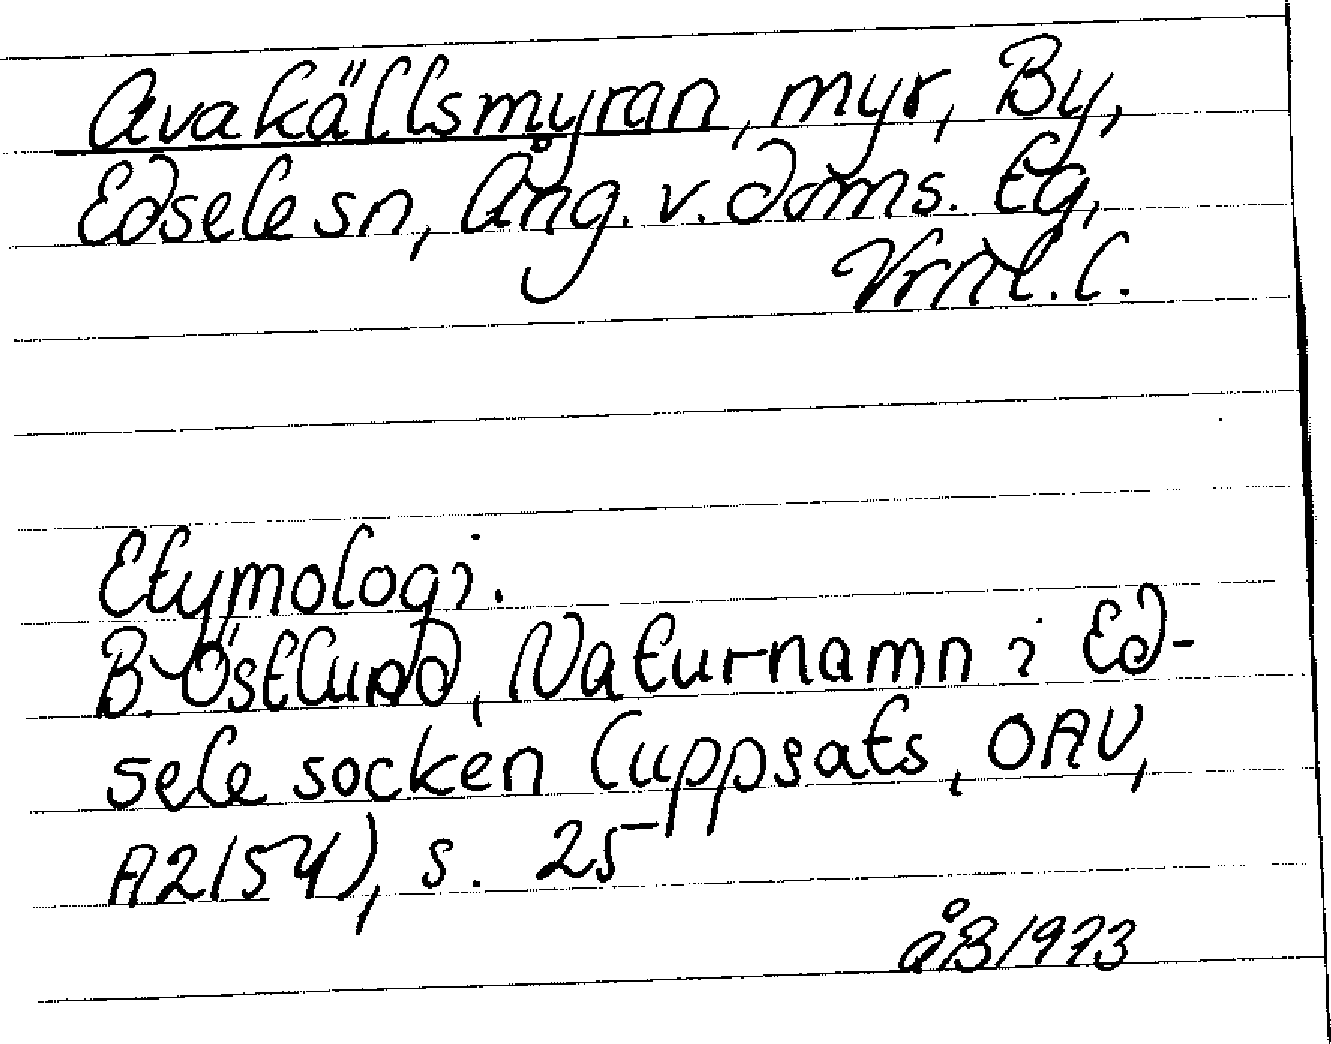 Avakällsmyran, myr, By,
Edsele sn, Ång. v. doms. tg,
Vrnl. l.
Etymologi.
B. Östlund, Naturnamn i Ed-
sele socken (uppsats, OAU,
A2154), s. 25
åB 1973